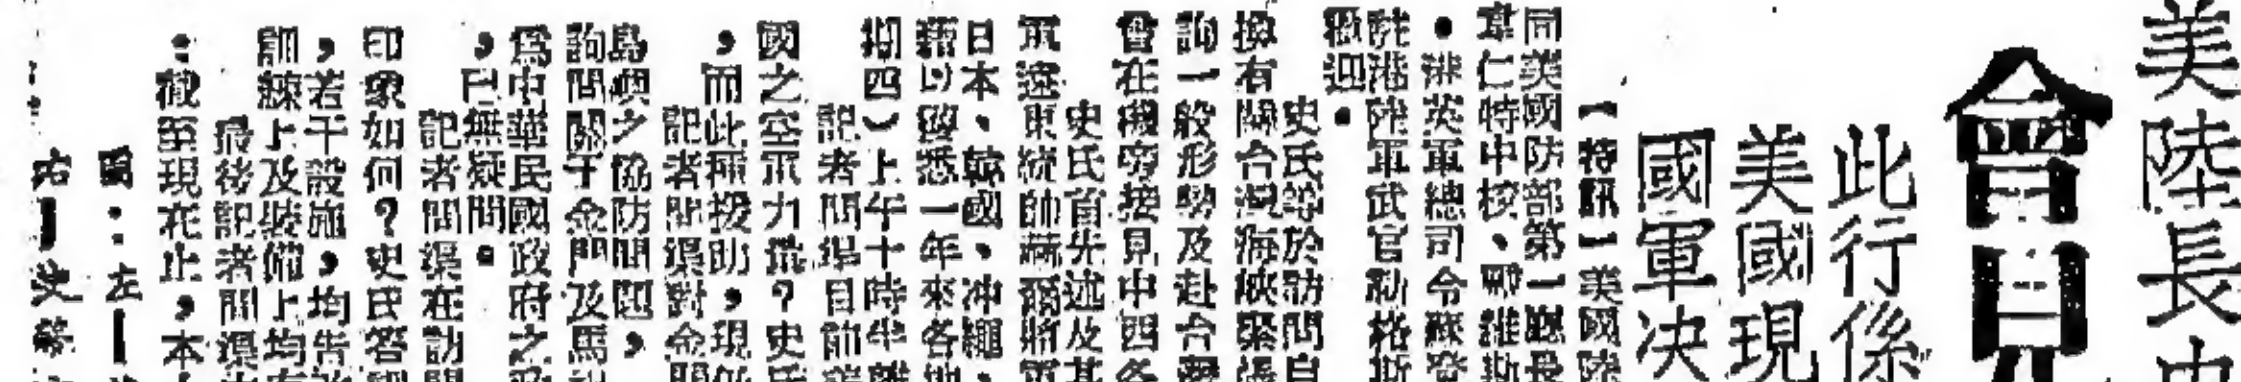 美陸長史
會見
此行係
美國現
國軍決
【特訊】美國陸
同美國防部第一廳長
韋仁特中校、
。港英軍總司令
駐港陸軍武官勒格斯
歡迎。
史氏等於訪問自
換有關台灣海峽緊張
詢一般形勢及赴台
會在機旁接見中西各
史氏首先述及其
軍遠東統帥
日本、韓國、冲繩、
藉以獲悉一年來各地
期四)上午十時半離
記者問渠目前
國之空軍力量?史氏
,而此種援助,現仍
記者問渠對金門
島嶼之協防問題,
詢問關于金門及馬祖
為中華民國政府之
,已無疑問。
記者問渠在訪問
印象如何?史氏答謂
,若干設施,均告
訓練上及裝備上均有
最後記者問渠
:截至現在止,本
圖:左
右